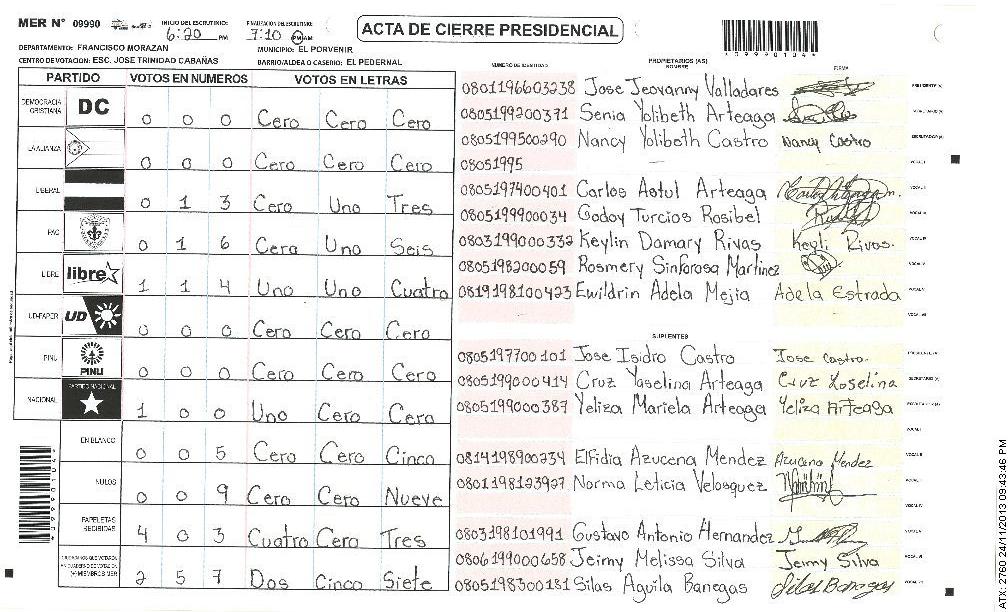 MER N° 09990
INICIO DEL ESCRUTINIO: 6:20 PM
FINALIZACION DEL ESCRUTINIO: 7:10 PM AM
ACTA DE CIERRE PRESIDENCIAL
*09990104*
DEPARTAMENTO: FRANCISCO MORAZAN
MUNICIPIO: EL PORVENIR
CENTRO DE VOTACION: ESC. JOSE TRINIDAD CABAÑAS
BARRIO/ALDEA O CASERIO: EL PEDERNAL
PARTIDO VOTOS EN NUMEROS VOTOS EN LETRAS
DEMOCRACIA CRISTIANA DC 0 0 0 Cero Cero Cero
LA ALIANZA 0 0 0 Cero Cero Cero
LIBERAL 0 1 3 Cero Uno Tres
PAC 0 1 6 Cero Uno Seis
LIBRE libre 1 1 4 Uno Uno Cuatro
UD-FAPER UD 0 0 0 Cero Cero Cero
PINU PINU 0 0 0 Cero Cero Cero
NACIONAL PARTIDO NACIONAL 1 0 0 Uno Cero Cero
EN BLANCO 0 0 5 Cero Cero Cinco
NULOS 0 0 9 Cero Cero Nueve
PAPELETAS RECIBIDAS 4 0 3 Cuatro Cero Tres
CIUDADANOS QUE VOTARON EN CUADERNO DE VOTACION (+) MIEMBROS MER 2 5 7 Dos Cinco Siete
NUMERO DE IDENTIDAD PROPIETARIOS (AS) NOMBRE FIRMA
0801196603238 Jose Jeovanny Valladares PRESIDENTE (A)
0805199200371 Senia Yolibeth Arteaga SECRETARIO (A)
0805199500290 Nancy Yolibeth Castro Nancy Castro ESCRUTADOR (A)
08051995 VOCAL I
0805197400401 Carlos Astul Arteaga VOCAL II
0805199900034 Godoy Turcios Rosibel VOCAL III
0803199000332 Keylin Damary Rivas Keyli Rivas. VOCAL IV
0805198200059 Rosmery Sinforosa Martinez
0819198100423 Ewildrin Adela Mejia Adela Estrada
SUPLENTES
0805197700101 Jose Isidro Castro Jose Castro. PRESIDENTE (A)
0805199000414 Cruz Yaselina Arteaga Cruz Yoselina SECRETARIO (A)
0805199000387 Yeliza Mariela Arteaga Yeliza Arteaga ESCRUTADOR (A)
0814198900234 Elfidia Azucena Mendez Azucena Mendez
0801198123927 Norma Leticia Velasquez
0803198101991 Gustavo Antonio Hernandez
0806199000658 Jeimy Melissa Silva Jeimy Silva
0805198300181 Silas Aguila Banegas Silas Banegas
*09990104*
ATX, 2760 24/11/2013 09:43:46 PM